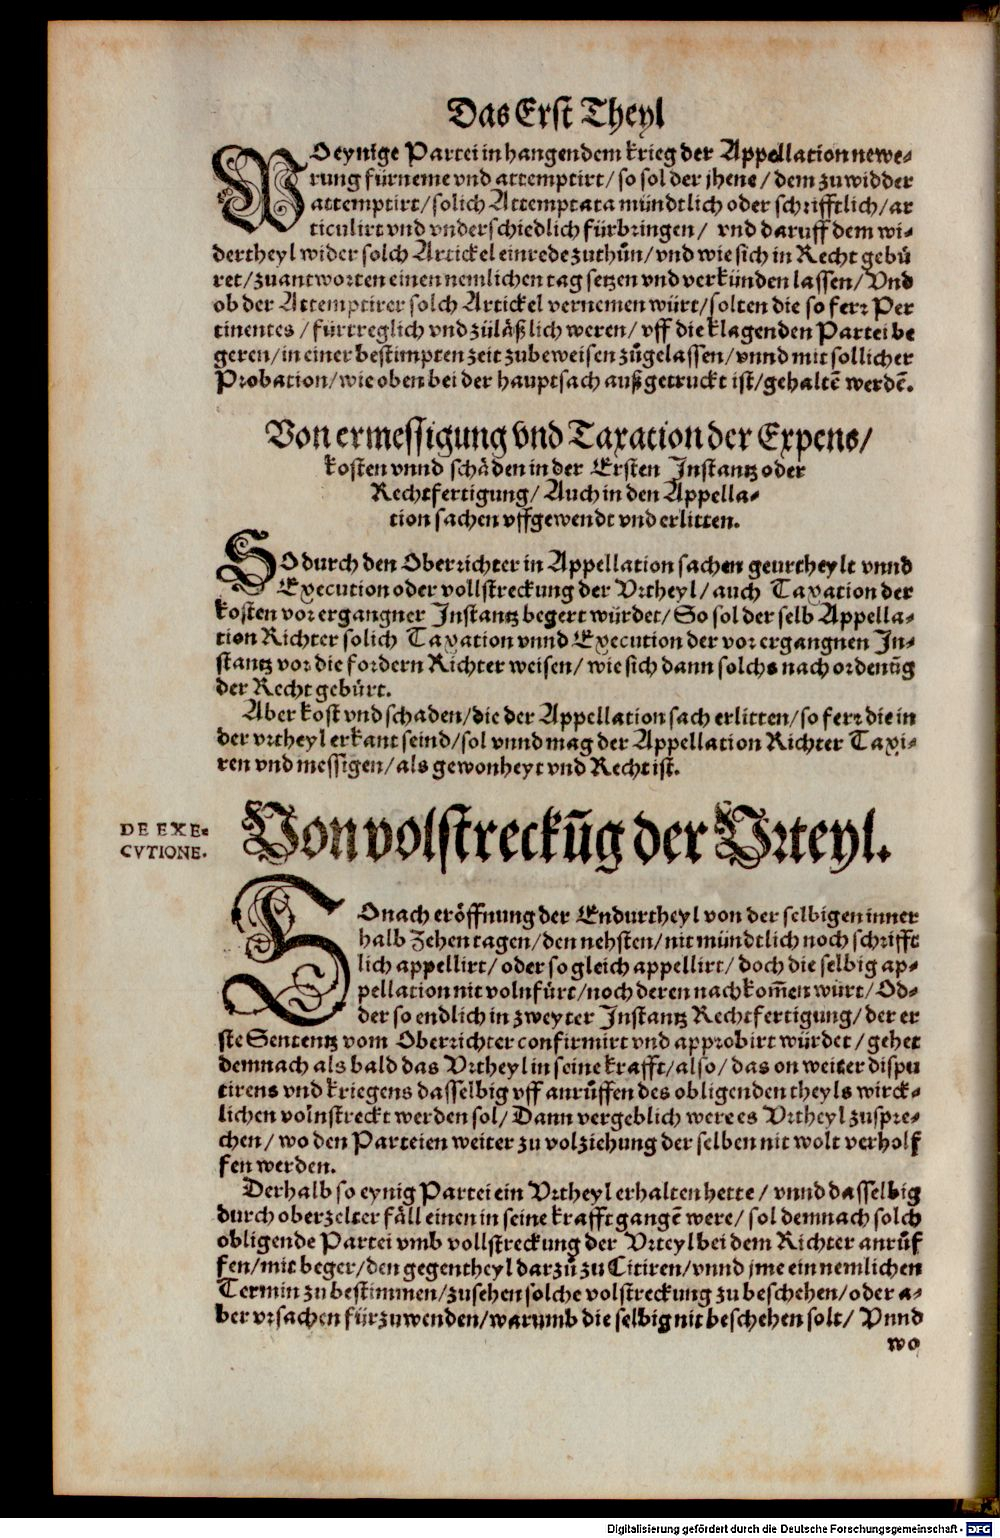 Das Erst Theyl
WO eynige Partei in hangendem krieg der Appellation newe-
rung fürneme vnd attemptirt / so sol der jhene / dem zuwidder
attemptirt / solich Attemptata mündtlich oder schrifftlich / ar
ticulirt vnd vnderschiedlich fürbringen / vnd daruff dem wi-
dertheyl wider solch Artickel einrede zuthůn / vnd wie sich in Recht gebü
ret / zuantworten einen nemlichen tag setzen vnd verkünden lassen / Vnd
ob der Attemptirer solch Artickel vernemen würt / solten die so ferr Per
tinentes / fürtreglich vnd zůläßlich weren / vff die klagenden Partei be
geren / in einer bestimpten zeit zubeweisen zůgelassen / vnnd mit sollicher
Probation / wie oben bei der hauptsach außgetruckt ist / gehaltē werdē.
Von ermessigung vnd Taxation der Expens /
kosten vnnd schäden in der Ersten Instantz oder
Rechtfertigung / Auch in den Appella-
tion sachen vffgewendt vnd erlitten.
SO durch den Oberrichter in Appellation sachen geurtheylt vnnd
Execution oder vollstreckung der Vrtheyl / auch Taxation der
kosten vorergangner Instantz begert würdet / So sol der selb Appella-
tion Richter solich Taxation vnnd Execution der vorergangnen In-
stantz vor die fordern Richter weisen / wie sich dann solchs nach ordenūg
der Recht gebürt.
Aber kost vnd schaden / die der Appellation sach erlitten / so ferr die in
der vrtheyl erkant seind / sol vnnd mag der Appellation Richter Taxi-
ren vnd messigen / als gewonheyt vnd Recht ist.
DE EXE-
CVTIONE.
Von volstreckūg der Vrteyl.
SO nach eröffnung der Endurtheyl von der selbigen inner
halb Zehen tagen / den nehsten / nit mündtlich noch schrifft
lich appellirt / oder so gleich appellirt / doch die selbig ap-
pellation nit volnfürt / noch deren nachkom̄en würt / Od-
der so endlich in zweyter Instantz Rechtfertigung / der er
ste Sententz vom Oberrichter confirmirt vnd approbirt würdet / gehet
demnach als bald das Vrtheyl in seine krafft / also / das on weiter dispu
tirens vnd kriegens dasselbig vff anrůffen des obligenden theyls wirck-
lichen volnstreckt werden sol / Dann vergeblich were es Vrtheyl zuspre-
chen / wo den Parteien weiter zu volziehung der selben nit wolt verholf
fen werden.
Derhalb so eynig Partei ein Vrtheyl erhalten hette / vnnd dasselbig
durch oberzelter fäll einen in seine krafft gangē were / sol demnach solch
obligende Partei vmb vollstreckung der Vrteyl bei dem Richter anrůf
fen / mit beger / den gegentheyl darzů zu Citiren / vnnd jme ein nemlichen
Termin zu bestimmen / zusehen solche volstreckung zu beschehen / oder a-
ber vrsachen fürzuwenden / warumb die selbig nit beschehen solt / Vnnd
wo
Digitalisierung gefördert durch die Deutsche Forschungsgemeinschaft - DFG